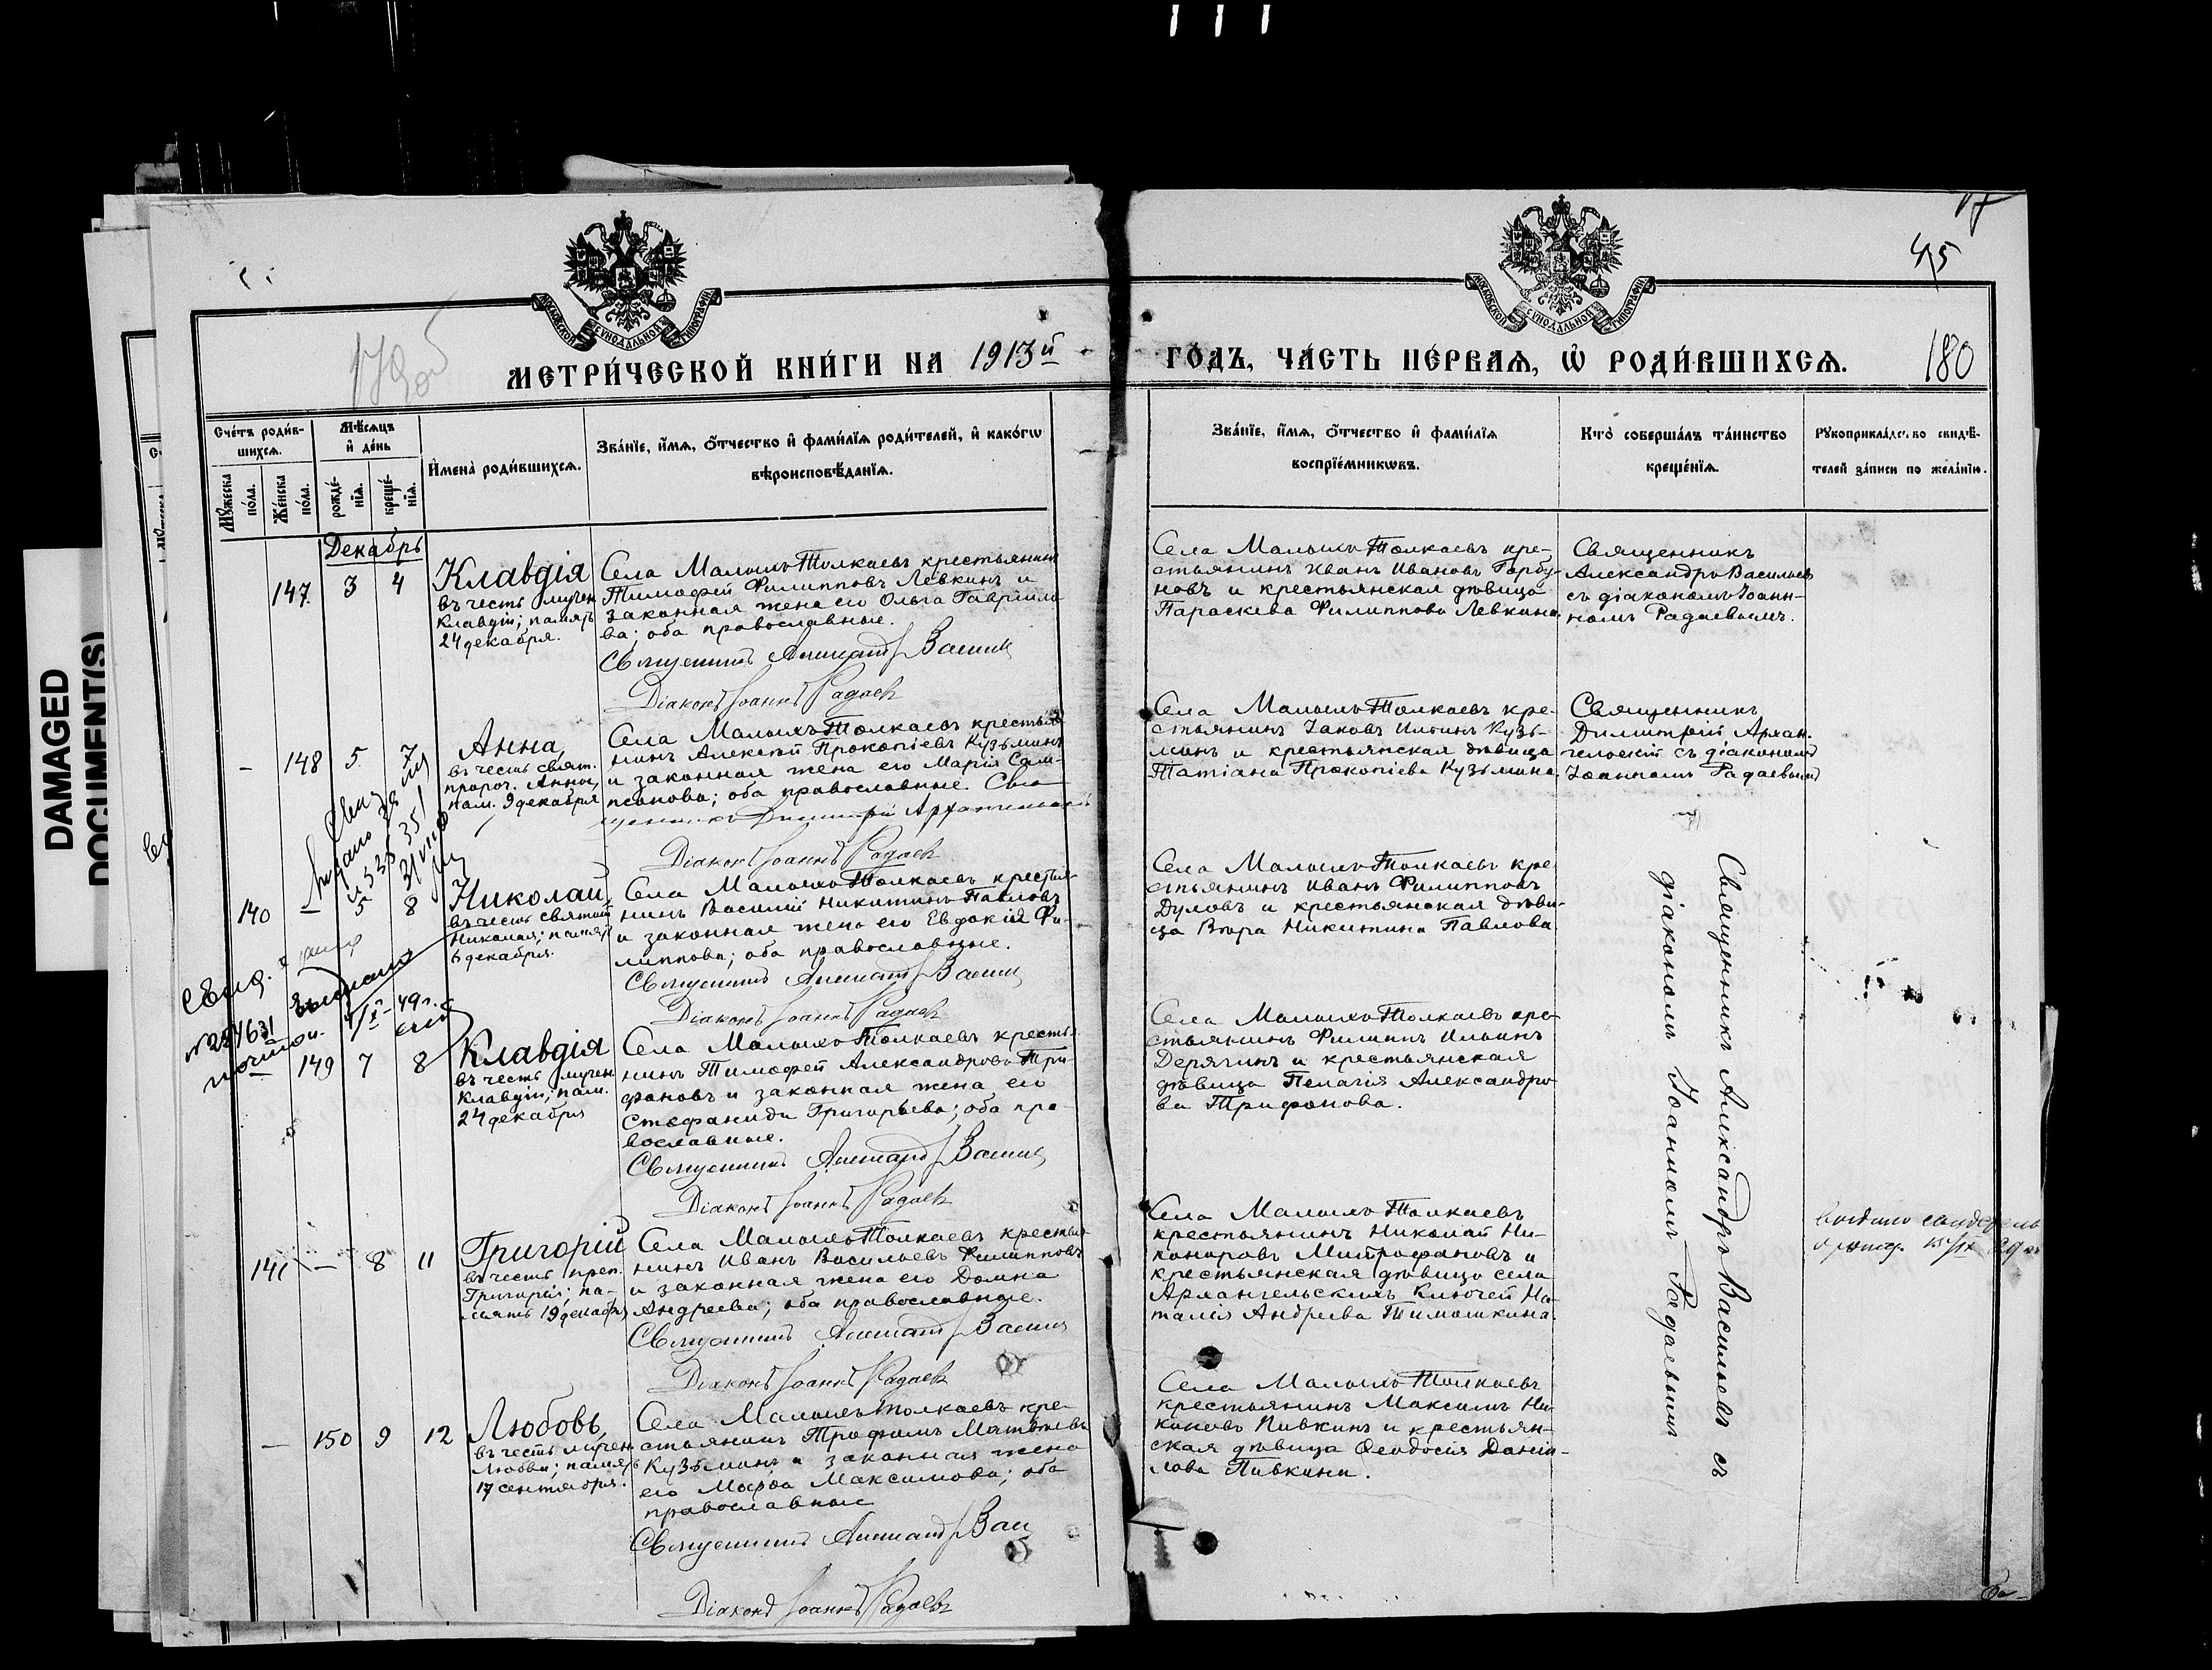 DAMAGED
DOCUMENT(S)
45
180
МОСКОВСКОЙ СУНОДАЛЬНОЙ ТИПОГРАФІИ
МОСКОВСКОЙ СУНОДАЛЬНОЙ ТИПОГРАФІИ
МЕТРИ́ЧЕСКОЙ КНИ́ГИ НА 1913й ГО́ДЪ, ЧА́СТЬ ПЕ́РВАѦ, Ѡ҆ РОДИ́ВШИХСѦ.
Сче́тъ роди́в-
шихсѧ.
Мꙋ́жеска
по́ла.
Же́нска
по́ла.
Мѣ́сѧцъ
и҆ де́нь
рожде́-
нїѧ.
креще́-
нїѧ.
И҆мена̀ роди́вшихсѧ.
Зва́нїе, и҆́мѧ, ѻ҆́тчество и҆ фами́лїѧ роди́телей, и҆ како́гѡ
вѣроисповѣ́данїѧ.
Зва́нїе, и҆́мѧ, ѻ҆́тчество и҆ фами́лїѧ
воспрїе́мникѡвъ.
Кто̀ соверша́лъ та́инство
креще́нїѧ.
Рꙋкоприкла́дство свидѣ́-
телей за́писи по жела́нїю.
Декабрь
147 3 4
Клавдія
въ честь мучен.
Клавдіи; память
24 декабря.
Села Малыхъ Толкаевъ крестьянинъ
Тимофей Филипповъ Левкинъ и
законная жена его Ольга Гаврило
ва; оба православные.
Священникъ Александръ Васильевъ
Діаконъ Іоаннъ Радаевъ
Села Малыхъ Толкаевъ кре-
стьянинъ Иванъ Ивановъ Горбу-
новъ и крестьянская дѣвица
Параскева Филиппова Левкина.
Священникъ
Александръ Васильевъ
съ діакономъ Іоан-
номъ Радаевымъ.
- 148 5 7
Анна,
въ честь свят.
пророч. Анны,
пам. 9 декабря
Села Малыхъ Толкаевъ крестья
нинъ Алексѣй Прокопіевъ Кузьминъ
и законная жена его Марія Сам-
псонова; оба православные. Свя
щенникъ Димитрій Архангельскій
Діаконъ Іоаннъ Радаевъ
Села Малыхъ Толкаевъ кре-
стьянинъ Іаковъ Ильинъ Кузь-
минъ и крестьянская дѣвица
Татіана Прокопіева Кузьмина.
Священникъ
Димитрій Архан-
гельскій съ діакономъ
Іоанномъ Радаевымъ
140 - 5 8
Николай,
въ честь святит.
Николая; память
6 декабря.
Села Малыхъ Толкаевъ крестья-
нинъ Василій Никитинъ Павловъ
и законная жена его Евдокія Фи-
липпова; оба православные.
Священникъ Александръ Васильевъ
Діаконъ Іоаннъ Радаевъ
Села Малыхъ Толкаевъ кре
стьянинъ Иванъ Филипповъ
Дуловъ и крестьянская дѣви-
ца Вѣра Никитина Павлова
Священникъ Александръ Васильевъ съ
діакономъ Іоанномъ Радаевымъ
149 7 8
Клавдія
въ честь мучен
Клавдіи, пам.
24 декабря
Села Малыхъ Толкаевъ крестья-
нинъ Тимофей Александровъ Три-
фановъ и законная жена его
Стефанида Григорьева; оба пра-
вославные.
Священникъ Александръ Васильевъ
Діаконъ Іоаннъ Радаевъ
Села Малыхъ Толкаевъ кре
стьянинъ Филиппъ Ильинъ
Дерячинъ и крестьянская
дѣвица Пелагія Александро-
ва Трифонова.
141 - 8 11
Григорій
въ честь преп.
Григорія; па-
мять 19 декабря
Села Малыхъ Толкаевъ крестья-
нинъ Иванъ Васильевъ Филипповъ
и законная жена его Домна
Андреева; оба православные.
Священникъ Александръ Васильевъ
Діаконъ Іоаннъ Радаевъ
Села Малыхъ Толкаевъ
крестьянинъ Николай Ни-
каноровъ Митрофановъ и
крестьянская дѣвица села
Архангельскихъ Ключей На-
талія Андреева Тимошкина.
- 150 9 12
Любовь,
въ честь мучен
Любви; память
17 сентября.
Села Малыхъ Толкаевъ кре-
стьянинъ Трофимъ Матвѣевъ
Кузьминъ и законная жена
его Марфа Максимова; оба
православные
Священникъ Александръ Вас
Діаконъ Іоаннъ Радаевъ
Села Малыхъ Толкаевъ
крестьянинъ Максимъ Ни-
коновъ Пивкинъ и крестьян-
ская дѣвица Ѳеодосія Дани-
лова Пивкина.